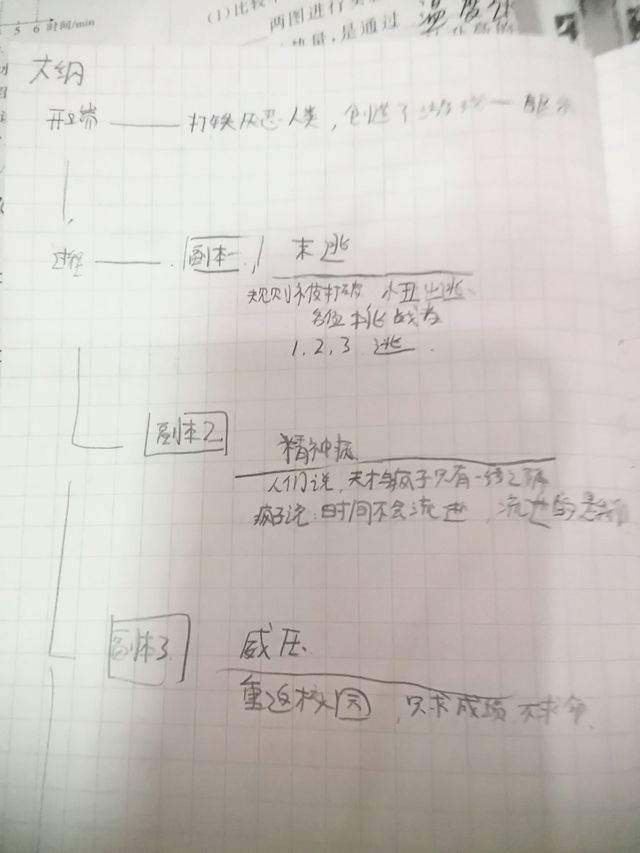 5 6 时间/min
(1)比较
两图进行实
质量,是通过 温度计
大纲
开端 —— 打铁厌恶人类,创造了游戏一
过程 —— 副本一 末逃
规则不被打破 小丑出逃
各位挑战者
1.2.3 逃
副本2 精神病
人们说,天才与疯子只有一线之隔
疯子说:时间不会流逝,流逝的是
副本3 威压
重返校园,只求成绩,不求命